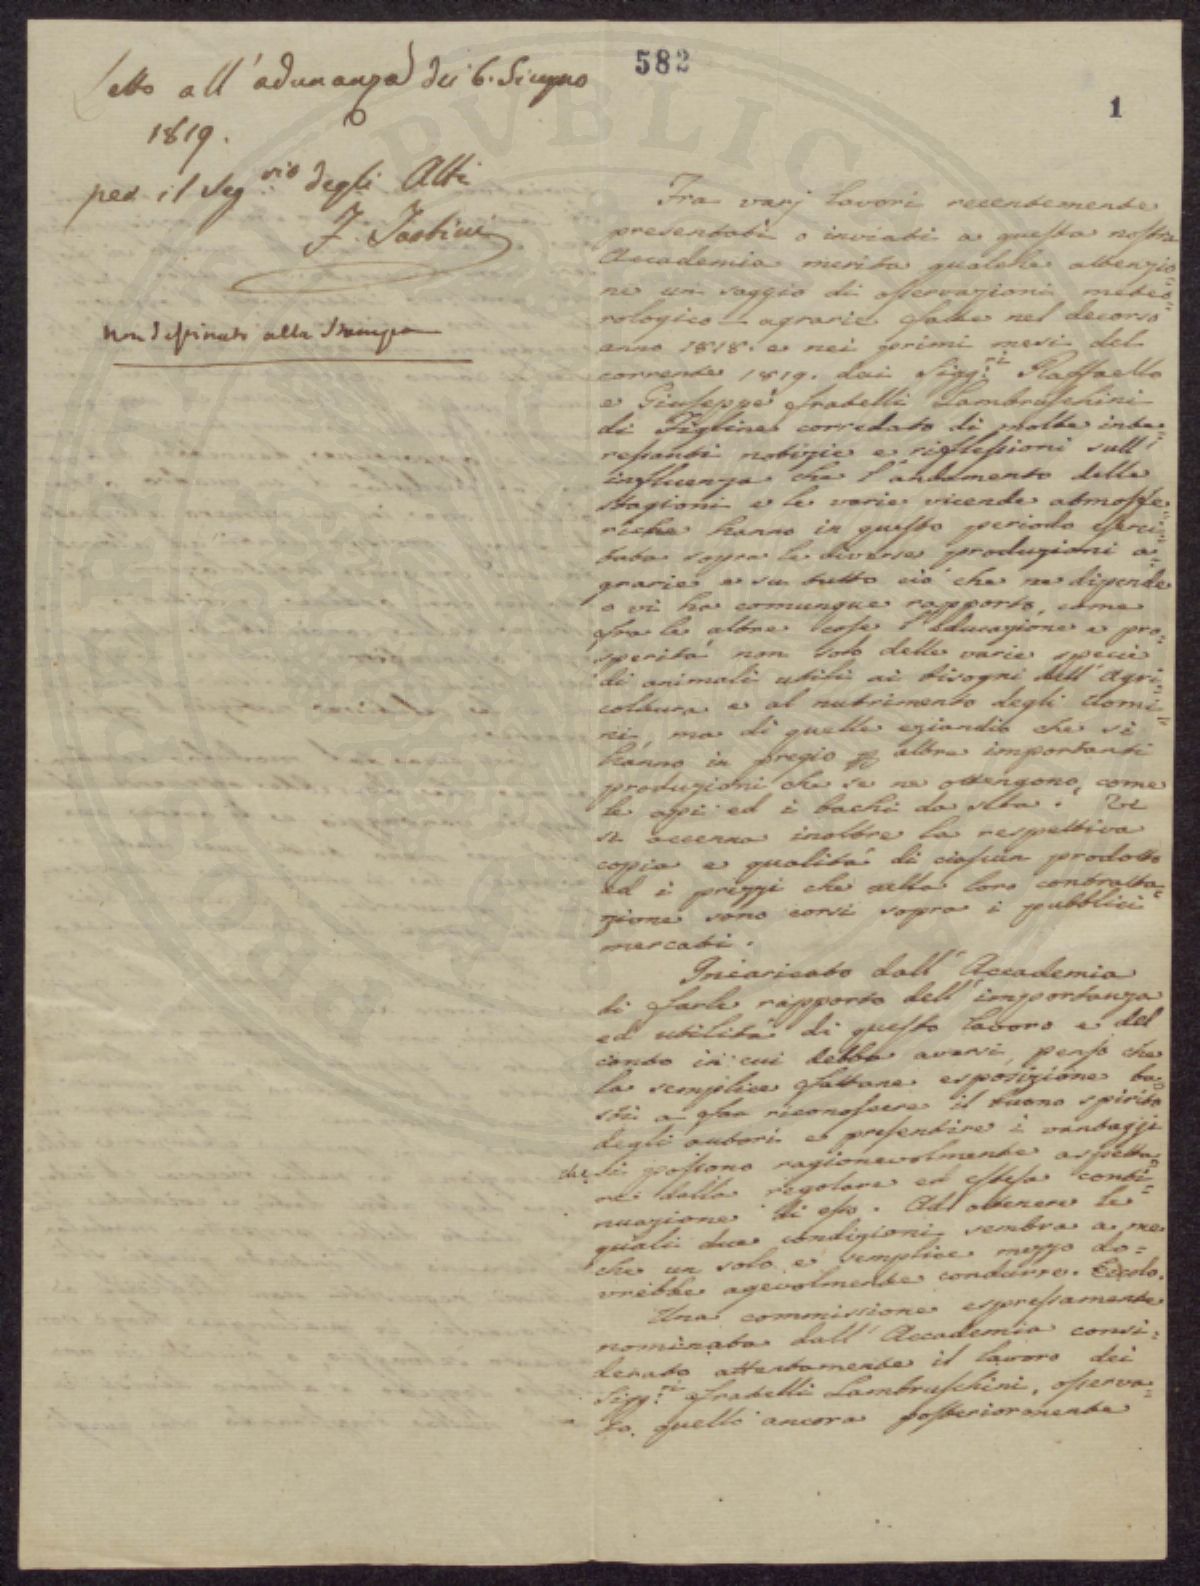 582
1
Letto all'adunanza dei 6. Giugno
1819.
per il Seg.rio degli Atti
F. Tartini
Non destinato alla Stampa
Fra varj lavori recentemente
presentati o inviati a questa nostra
Accademia merita qualche attenzio=
ne un saggio di osservazioni meteo=
rologico-agrarie fatte nel decorso
anno 1818. e nei primi mesi del
corrente 1819. dai Sigg.ri Raffaello
e Giuseppe fratelli Lambruschini
di Figline corredato di molte inte=
ressanti notizie e riflessioni sull'
influenza che l'andamento delle
stagioni e le varie vicende atmosfe=
riche hanno in questo periodo eserci=
tata sopra le diverse produzioni a=
grarie e su tutto ciò che ne dipende
o vi ha comunque rapporto, come
fra le altre cose l'educazione e pro=
sperità non solo delle varie specie
di animali utili ai bisogni dell'Agri=
coltura e al nutrimento degli Uomi=
ni, ma di quelle eziandio che si
hanno in pregio p altre importanti
produzioni che se ne ottengono, come
le api ed i bachi da seta. Vi
si accenna inoltre la respettiva
copia e qualità di ciascun prodotto
ed i prezzi che nella loro contratta=
zione sono corsi sopra i pubblici
mercati.
Incaricato dall'Accademia
di farle rapporto dell'importanza
ed utilità di questo lavoro e del
conto in cui debba aversi, penso che
la semplice fattane esposizione ba=
sti a far riconoscere il buono spirito
degli autori e presentire i vantaggi
che si possono ragionevolmente aspetta=
re dalla regolare ed estesa conti=
nuazione di esso. Ad ottenere le
quali due condizioni sembra a me
che un solo e semplice mezzo do=
vrebbe agevolmente condurre. Eccolo.
Una commissione espressamente
nominata dall'Accademia consi=
derato attentamente il lavoro dei
Sigg.ri fratelli Lambruschini, osserva=
to quello ancora posteriormente